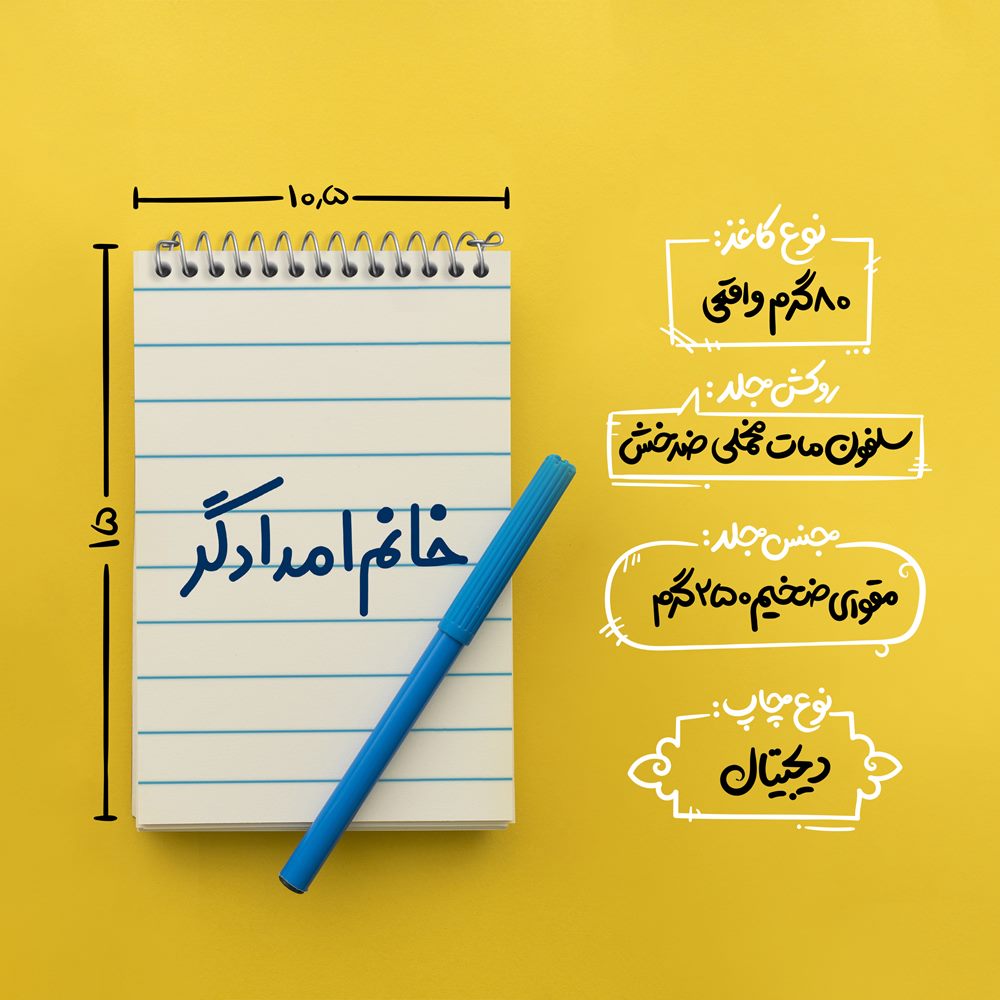 ۱۰٫۵
۱۵
خانم امدادگر
نوع کاغذ:
۸۰گرم واقعی
روکش جلد:
سلفون مات مخملی ضدخش
جنس جلد:
مقوای ضخیم ۲۵۰گرم
نوع چاپ:
دیجیتال